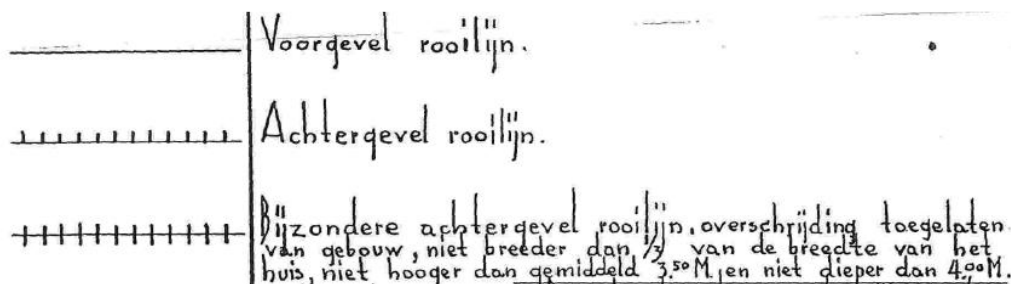 Voorgevel rooilijn.
Achtergevel rooilijn.
Bijzondere achtergevel rooilijn, overschrijding toegelaten
van gebouw, niet breeder dan 1/3 van de breedte van het
huis, niet hooger dan gemiddeld 3.50 M, en niet dieper dan 4.00 M.